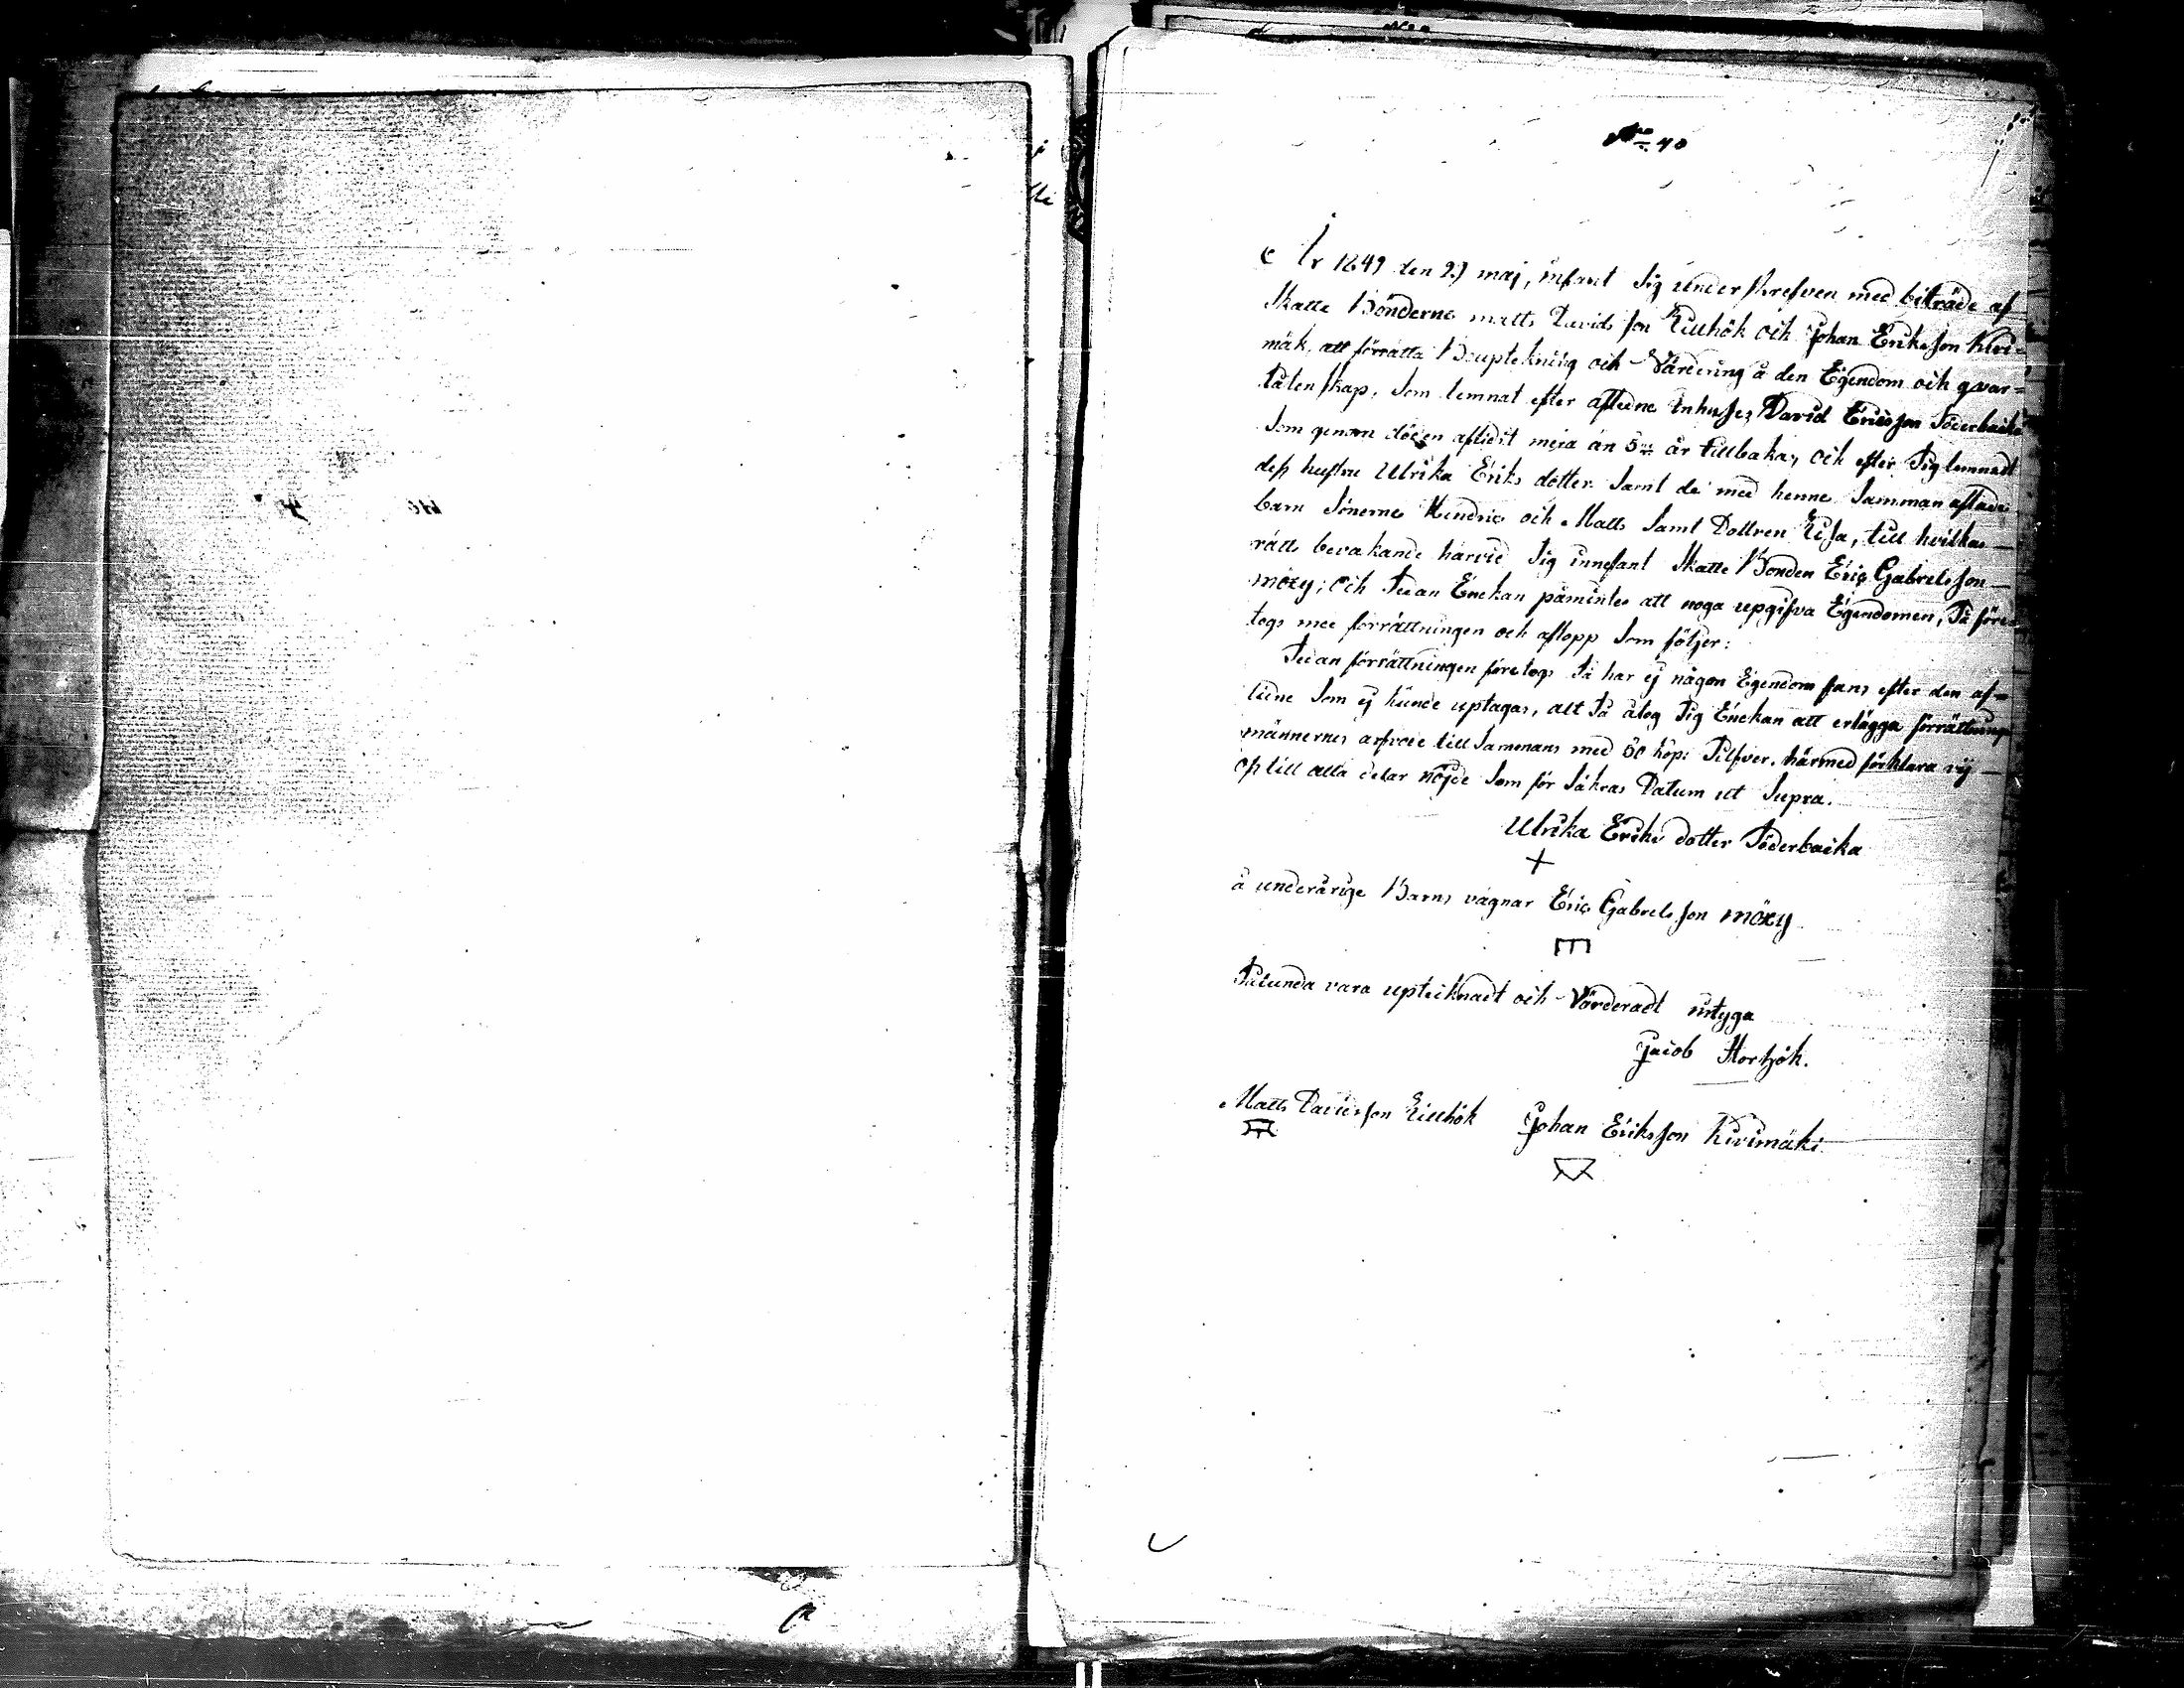 No 40
År 1849 den 29 maj, infant Sig underskrefven med biträde af
Skatte Bönderne matts Davidsson Lillhök och Johan Eriksson Kivi-
mäk, att förrätta Bouptekning och Värdering å den Egendom och qvar-
låtenskap, Som lemnat efter aflidne Inhyses David Ericsson Söderbacka
Som genom döden aflidit mera än 5 år tillbaka, och efter Sig lemnadt
dess hustru Ulrika Eriks dotter Samt de med henne Samman aflade
barn Sönerne Hindric och Matts Samt Dottren Lisa, till hvilkas
rätts bevakande härvid Sig innefant Skatte Bonden Eric Gabrielsson
möxy; och Sedan Enckan påmintes att noga upgifva Egendomen, Så före-
togs med förrättningen och aflopp Som följer:
Sedan förrättningen företogs Så har ej någon Egendom fans efter den af-
lidne Som ej kunde uptagas, allt Så åtog Sig Enckan att erlägga förrättnings
männernes arfvode till Sammans med 60 kop: Silfver. härmed förklara vij
oss till alla delar nöjde Som för Säkras Datum ut Supra.
Ulrika Eriks dotter Söderbacka
å underårige Barns vägnar Eric Gabrelsson möxy
Sålunda vara uptecknadt och Värderadt intyga
Jacob Stortzök.
Matts Davidsson Lillhök Johan Eriksson Kivimäki